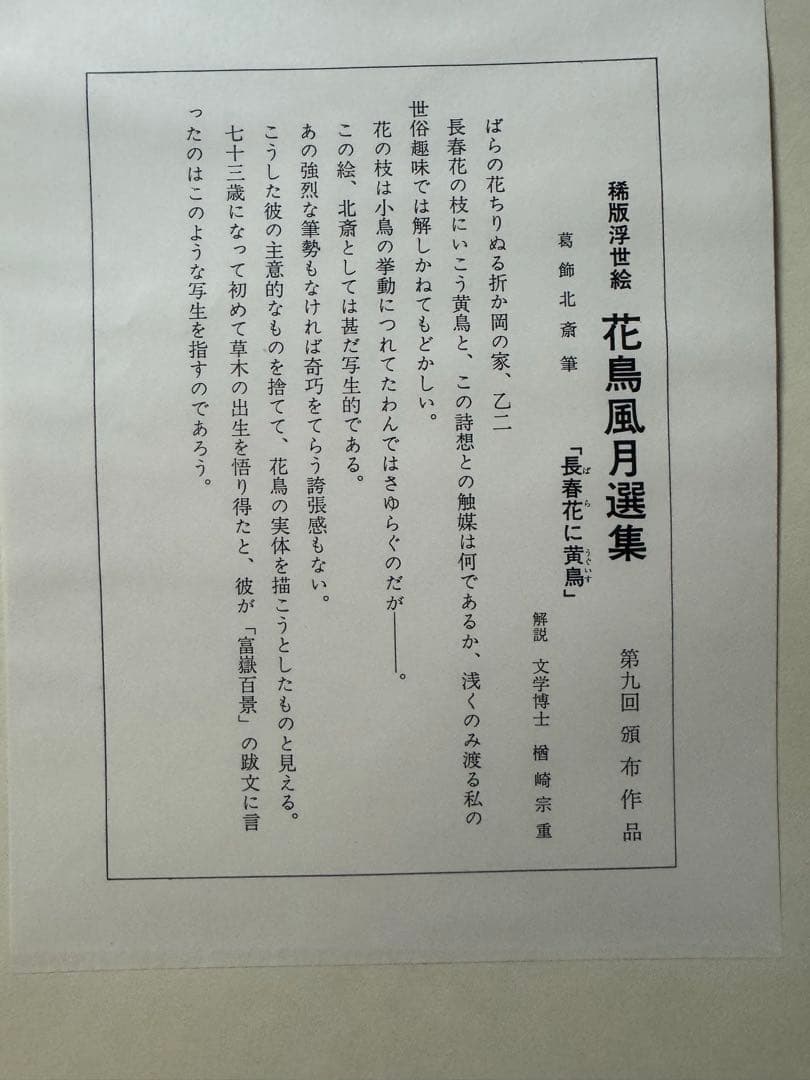 稀版浮世絵 花鳥風月選集 第九回頒布作品
葛飾北斎筆 「長春花に黄鳥」
ばら うぐいす
解説 文学博士 楢崎宗重
ばらの花ちりぬる折か岡の家、乙二
長春花の枝にいこう黄鳥と、この詩想との触媒は何であるか、浅くのみ渡る私の
世俗趣味では解しかねてもどかしい。
花の枝は小鳥の挙動につれてたわんではさゆらぐのだが――。
この絵、北斎としては甚だ写生的である。
あの強烈な筆勢もなければ奇巧をてらう誇張感もない。
こうした彼の主意的なものを捨てて、花鳥の実体を描こうとしたものと見える。
七十三歳になって初めて草木の出生を悟り得たと、彼が「富嶽百景」の跋文に言
ったのはこのような写生を指すのであろう。